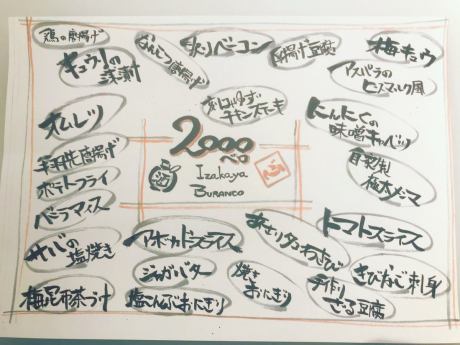 鶏の唐揚げ
なんこつ唐揚げ
炙りベーコン
揚げ豆腐
梅キュウ
キュウリの
漬け
アスパラの
ヒスマルク風
ゆず
チキンステーキ
オムレツ
にんにくの
味噌キャベツ
2000
ベロ
Izakaya
Buranco
酒
自家製
梅水メンマ
唐揚げ
ポテトフライ
バニラアイス
トマトスライス
サバの
塩焼き
アボカドスライス
あさりタンわさび
ジャガバター
焼き
おにぎり
手作り
ざる豆腐
刺身
梅昆布茶づけ
塩こんぶおにぎり